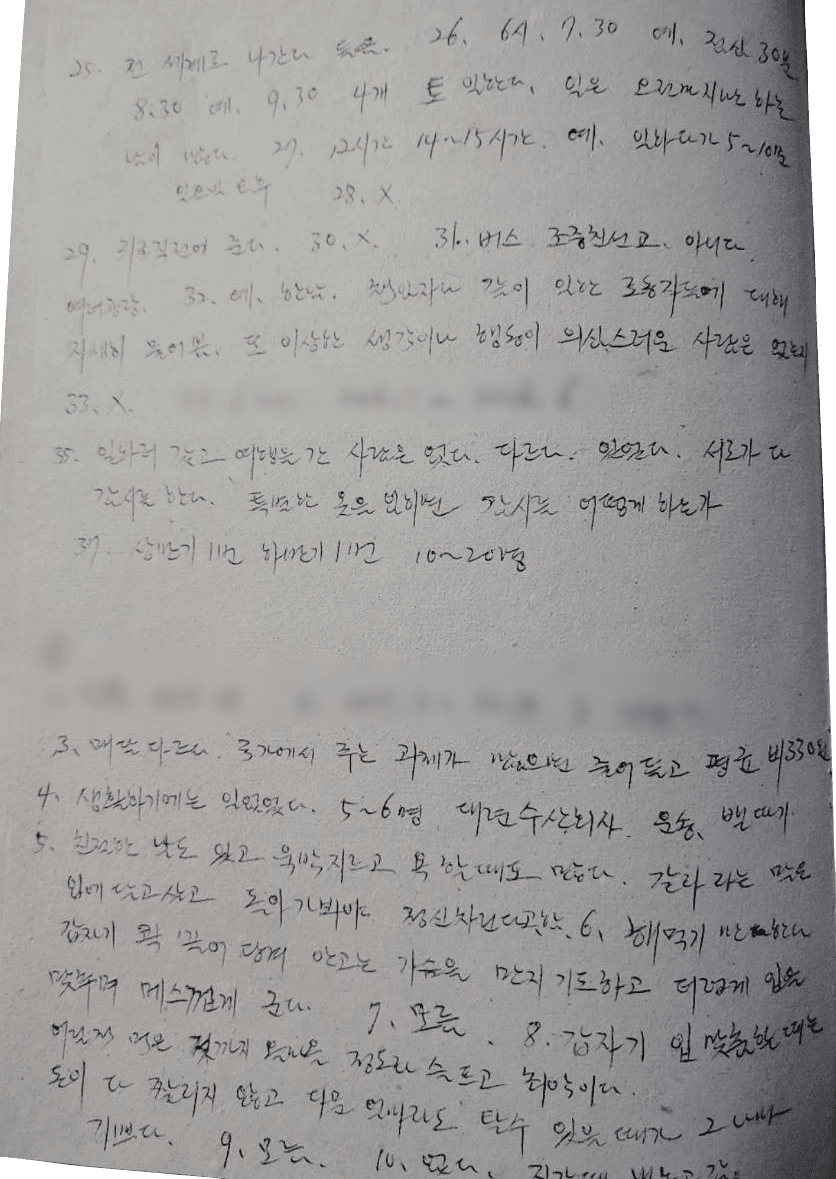 25. 전 세계로 나간다 들음. 26. 6시, 7.30 예. 점심 30분
8.30 예. 9.30 4개 토 일한다. 일은 오전까지만 하는
날이 많다. 27. 12시간 14~15시간. 예. 일하다가 5~10분
28. X
29. 준다. 30. X. 31. 버스 조중친선교. 아니다
32. 예. 한달. 책임자나 같이 일한 로동자들에 대해
자세히 물어봄. 또 이상한 생각이나 행동이 의심스러운 사람은 없는지
33. X.
35. 일하러 갔고 여행을 간 사람은 없다. 다르다. 있었다. 서로가 다
감시를 한다. 특별한 옷을 입히면 감시를 어떻게 하는가
37. 상반기 1번 하반기 1번 10~20명
3. 매달 다르다. 국가에서 주는 과제가 많으면 줄어들고 평균 비330원
4. 생활하기에는 있었다. 5~6명 대련수산회사. 운송, 밸따기
5. 친절한 날도 있고 욱박지르고 욕할때도 많다. 갈라 라는 말은
입에 달고살고 돌아가봐야 정신차린다고함. 6. 해먹기만 한다
갑자기 확 끌어 당겨 안고는 가슴을 만지기도하고 더럽게 입을
맞추며 메스껍게 군다. 7. 모름. 8. 갑자기 입맞춤할때는
어릴적 먹은 젖까지 올라올 정도라 슬프고 최악이다.
돈이 다 잘리지 않고 다음 얼마라도 탈수 있을때가 그나마
기쁘다. 9. 모름. 10. 없다.